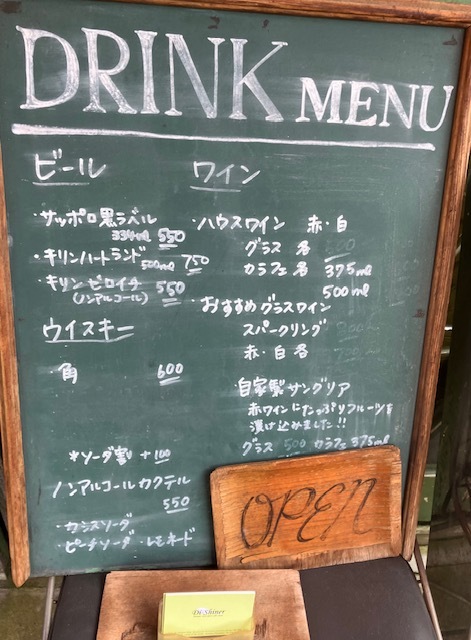 DRINK MENU
ビール
・サッポロ黒ラベル
334ml 550
・キリンハートランド
500ml 750
・キリンゼロイチ
(ノンアルコール) 550
ウイスキー
角 600
*ソーダ割 +100
ノンアルコールカクテル
550
・カシスソーダ
・ピーチソーダ・レモネード
ワイン
・ハウスワイン 赤・白
グラス 各 500
カラフェ 各 375ml
500ml
・おすすめグラスワイン
スパークリング
赤・白 各
・自家製サングリア
赤ワインにたっぷりフルーツを
漬け込みました!!
グラス 500 カラフェ 375ml
OPEN
Di-Shiner